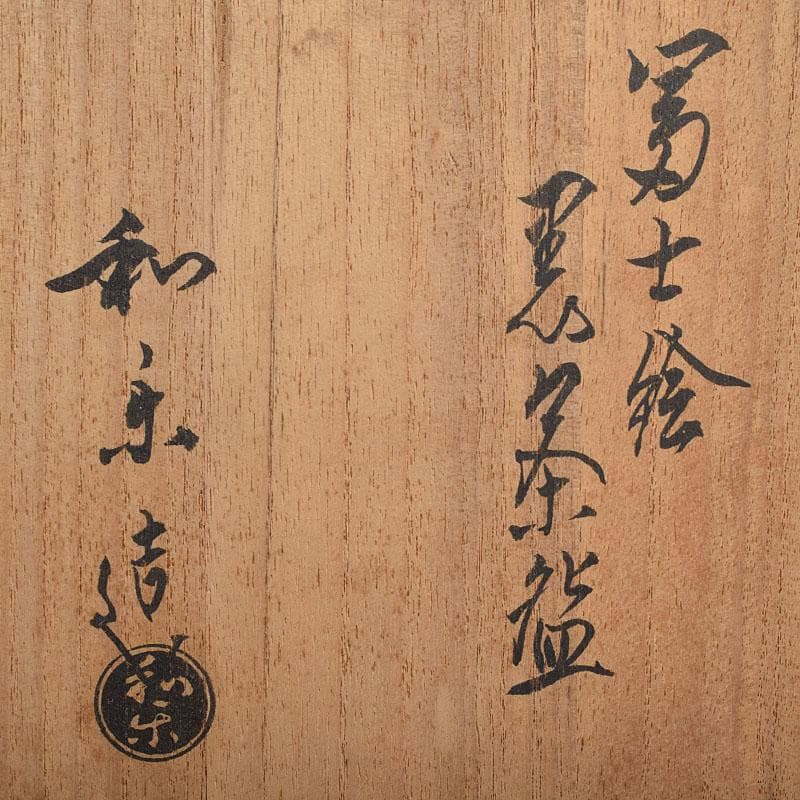 冨士絵
黒茶盌
和楽造
和楽